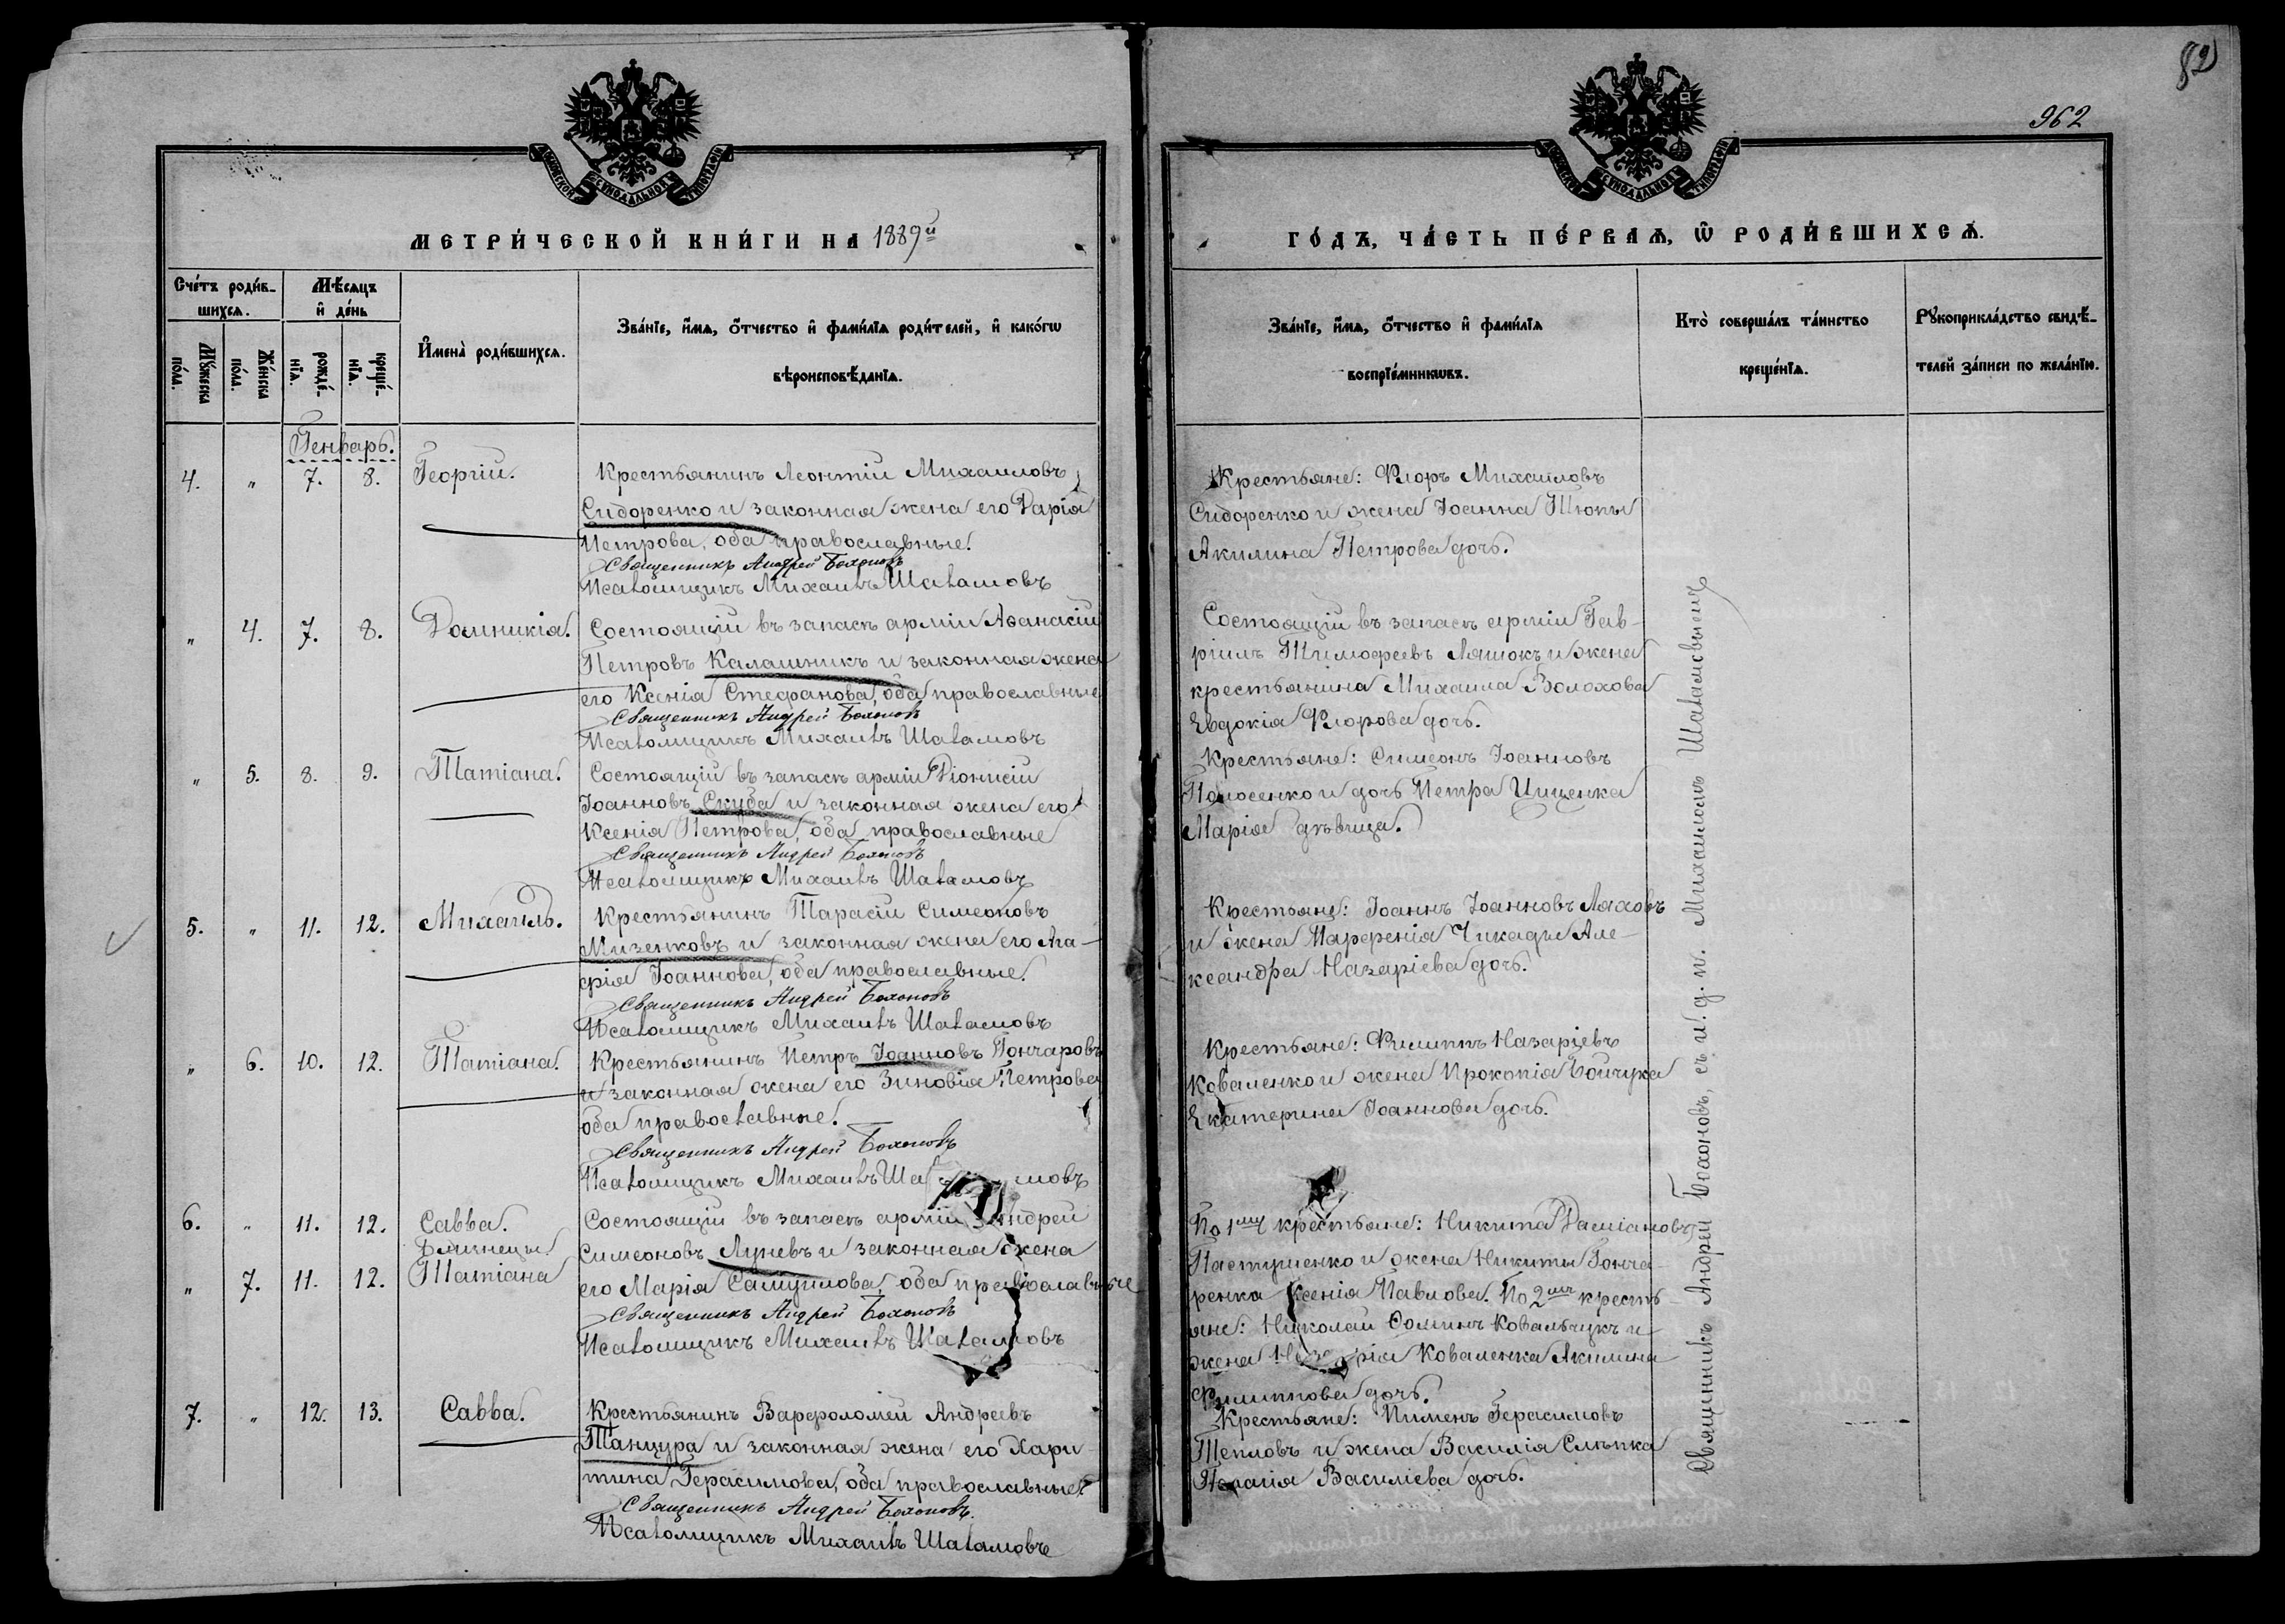 82
962
МОСКОВСКОЙ СѴНОДАЛЬНОЙ ТИПОГРАФІИ
МОСКОВСКОЙ СѴНОДАЛЬНОЙ ТИПОГРАФІИ
МЕТРИ́ЧЕСКОЙ КНИ́ГИ НА 1889й
ГО́ДЪ, ЧА́СТЬ ПЕ́РВАѦ, Ѿ РОДИ́ВШИХСѦ.
Сче́тъ роди́в-
шихсѧ.
Мꙋ́жеска
по́ла.
Же́нска
по́ла.
Мѣ́сяцъ
и҆ де́нь
рожде́-
нїѧ.
креще́-
нїѧ.
И҆мена̀ роди́вшихсѧ.
Зва́нїе, и҆́мѧ, ѻ҆́тчество и҆ фами́лїѧ роди́телей, и҆ како́гѡ
вѣроисповѣ́данїѧ.
Зва́нїе, и҆́мѧ, ѻ҆́тчество и҆ фами́лїѧ
воспрїе́мникѡвъ.
Кто̀ соверша́лъ та́инство
креще́нїѧ.
Рꙋкоприкла́дство свидѣ́-
телей за́писи по жела́нїю.
Генварь.
4. " 7. 8. Георгій.
Крестьянинъ Леонтій Михаиловъ
Сидоренко и законная жена его Дарія
Петрова, оба православные.
Священникъ Андрей Бохоновъ
Псаломщикъ Михаилъ Шаламовъ
Крестьяне: Флоръ Михаиловъ
Сидоренко и жена Іоанна Тюпы
Акилина Петрова дочь.
" 4. 7. 8. Домникія.
Состоящій въ запасѣ арміи Аѳанасій
Петровъ Калашникъ и законная жена
его Ксенія Стефанова, оба православные
Священникъ Андрей Бохоновъ
Псаломщикъ Михаилъ Шаламовъ
Состоящій въ запасѣ арміи Гав-
ріилъ Тимофеевъ Ляшокъ и жена
крестьянина Михаила Волохова
Евдокія Флорова дочь.
" 5. 8. 9. Татіана.
Состоящій въ запасѣ арміи Діонисій
Іоанновъ Скуба и законная жена его
Ксенія Петрова, оба православные
Священникъ Андрей Бохоновъ
Псаломщикъ Михаилъ Шаламовъ
Крестьяне: Симеонъ Іоанновъ
и дочь Петра Ищенка
Марія дѣвица.
5. " 11. 12. Михаилъ.
Крестьянинъ Тарасій Симеоновъ
Мизенковъ и законная жена его Ага-
фія Іоаннова, оба православные.
Священникъ Андрей Бохоновъ
Псаломщикъ Михаилъ Шаламовъ
Крестьяне: Іоаннъ Іоанновъ Ляховъ
и жена Парфенія Чикады Але-
ксандра Назаріева дочь.
" 6. 10. 12. Татіана.
Крестьянинъ Петръ Іоанновъ Гончаровъ
и законная жена его Зиновія Петрова
оба православные.
Священникъ Андрей Бохоновъ
Псаломщикъ Михаилъ Шаламовъ
Крестьяне: Филиппъ Назаріевъ
Коваленко и жена Прокопія Бойчука
Екатерина Іоаннова дочь.
6. " 11. 12. Савва.
Близнецы.
" 7. 11. 12. Татіана
Состоящій въ запасѣ арміи Андрей
Симеоновъ Луневъ и законная жена
его Марія Самуилова, оба православные
Священникъ Андрей Бохоновъ
Псаломщикъ Михаилъ Шаламовъ
По 1му крестьяне: Никита Даміановъ
Пастушенко и жена Никиты Гонча-
ренка Ксенія Павлова. По 2му кресть-
яне: Николай Фоминъ Ковальчукъ и
жена Назарія Коваленка Акилина
Филиппова дочь.
7. " 12. 13. Савва.
Крестьянинъ Варфоломей Андреевъ
Танцура и законная жена его Хари-
тина Герасимова, оба православные.
Священникъ Андрей Бохоновъ.
Псаломщикъ Михаилъ Шаламовъ
Крестьяне: Пименъ Герасимовъ
Тепловъ и жена Василія Слѣпка
Пелагія Василіева дочь.
Священникъ Андрей Бохоновъ, съ и. д. п. Михаиломъ Шаламовымъ